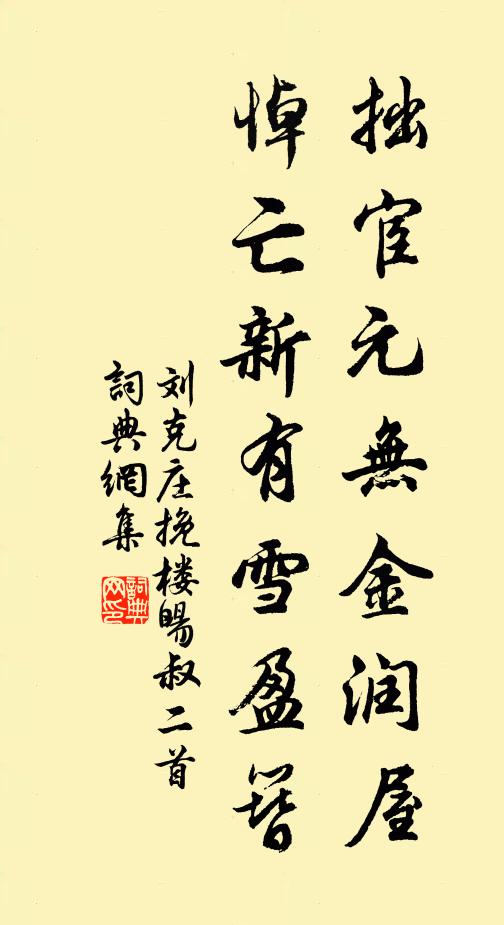 拙宦元無金润屋
悼亡新有雪盈簪
刘克庄挽楼賜叔二首
詞典網集
詞典网印